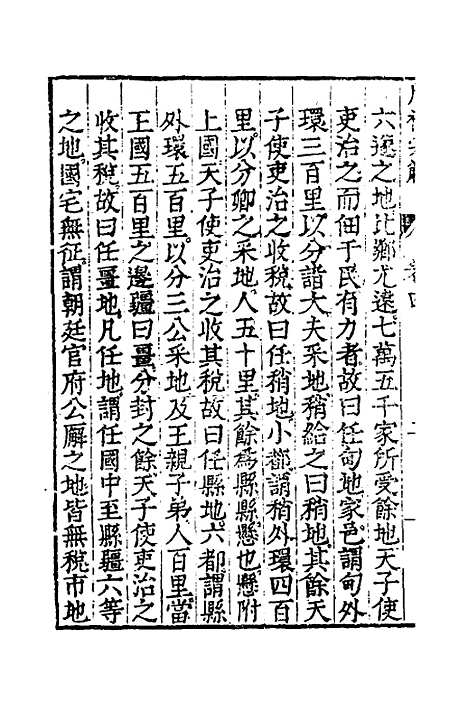 六遂之地比鄉尤遠七萬五千家所受餘地天子使
吏治之而佃于民有力者故曰任甸地家邑謂甸外
環三百里以分諸大夫采地稍給之曰稍地其餘天
子使吏治之收稅故曰任稍地小都謂稍外環四百
里以分卿之采地人五十里其餘爲縣縣懸也懸附
上國天子使吏治之收其稅故曰任縣地六都謂縣
外環五百里以分三公采地及王親子弟人百里當
王國五百里之邊疆曰畺分封之餘天子使吏治之
收其稅故曰任畺地凡任地謂任國中至縣疆六等
之地國宅無征謂朝廷官府公廨之地皆無稅市地